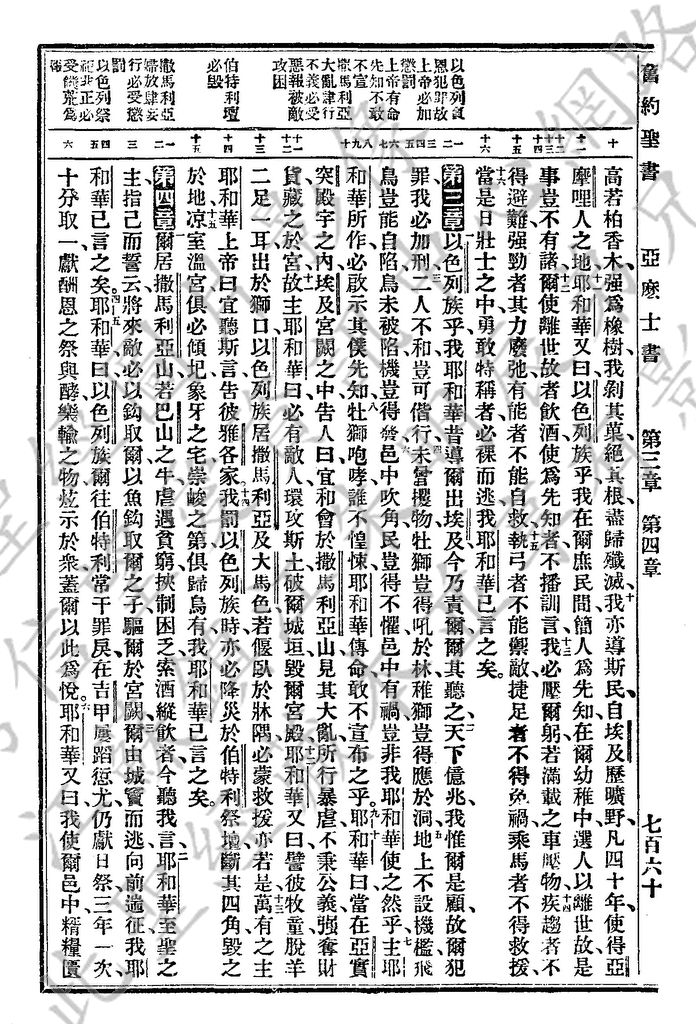 舊約聖書 亞麽士書 第三章 第四章 七百六十
以色列負
恩犯罪故
上帝必加
懲罰
上帝有命
先知不敢
不宣
撒馬利亞
大亂肆行
不義必受
惡報被敵
攻困
伯特利壇
必毁
撒馬利亞
婦放肆妄
行必受懲
罰
以色列祭
祀非正必
受饑荒爲
高若柏香木強爲橡樹我剝其菓絕其根盡歸殲滅十我亦導斯民自埃及歷曠野凡四十年使得亞
摩哩人之地十一耶和華又曰以色列族乎我在爾庶民間簡人爲先知在爾幼稚中選人以離世故是
事豈不有諸十二爾使離世故者飲酒使爲先知者不播訓言十三我必壓爾躬若滿載之車壓物十四疾趨者不
得避難強勁者其力廢弛有能者不能自救十五執弓者不能禦敵捷足者不得免禍乘馬者不得救援
十六當是日壯士之中勇敢特稱者必裸而逃我耶和華已言之矣
第三章一以色列族乎我耶和華昔導爾出埃及今乃責爾爾其聽之二天下億兆我惟爾是顧故爾犯
罪我必加刑三二人不和豈可偕行四未嘗攫物牡獅豈得吼於林稚獅豈得應於洞五地上不設機檻飛
鳥豈能自陷鳥未被陷機豈得發六邑中吹角民豈得不懼邑中有禍豈非我耶和華使之然乎七主耶
和華所作必啟示其僕先知八牡獅咆哮誰不惶悚耶和華傳命敢不宣布之乎九十耶和華曰當在亞實
突殿宇之內埃及宮闕之中告人曰宜和會於撒馬利亞山見其大亂所行暴虐不秉公義強奪財
貨藏之於宮十一故主耶和華曰必有敵人環攻斯土破爾城垣毁爾宮殿十二耶和華又曰譬彼牧童脫羊
二足一耳出於獅口以色列族居撒馬利亞及大馬色若偃臥於牀隅必蒙救援亦若是十三萬有之主
耶和華上帝曰宜聽斯言告彼雅各家十四我罰以色列族時亦必降災於伯特利祭壇斷其四角毁之
於地十五凉室溫宮俱必傾圮象牙之宅崇峻之第俱歸烏有我耶和華已言之矣
第四章一爾居撒馬利亞山若巴山之牛虐遇貧窮挾制困乏索酒縱飲者今聽我言二耶和華至聖之
主指己而誓云將來敵必以鈎取爾以魚鈎取爾之子三驅爾於宮闕爾由城竇而逃向前遄征我耶
和華已言之矣四五耶和華曰以色列族爾往伯特利常干罪戾在吉甲屢蹈愆尤仍獻日祭三年一次
十分取一獻酬恩之祭與酵樂輸之物炫示於衆蓋爾以此爲悅六耶和華又曰我使爾邑中糈糧匱